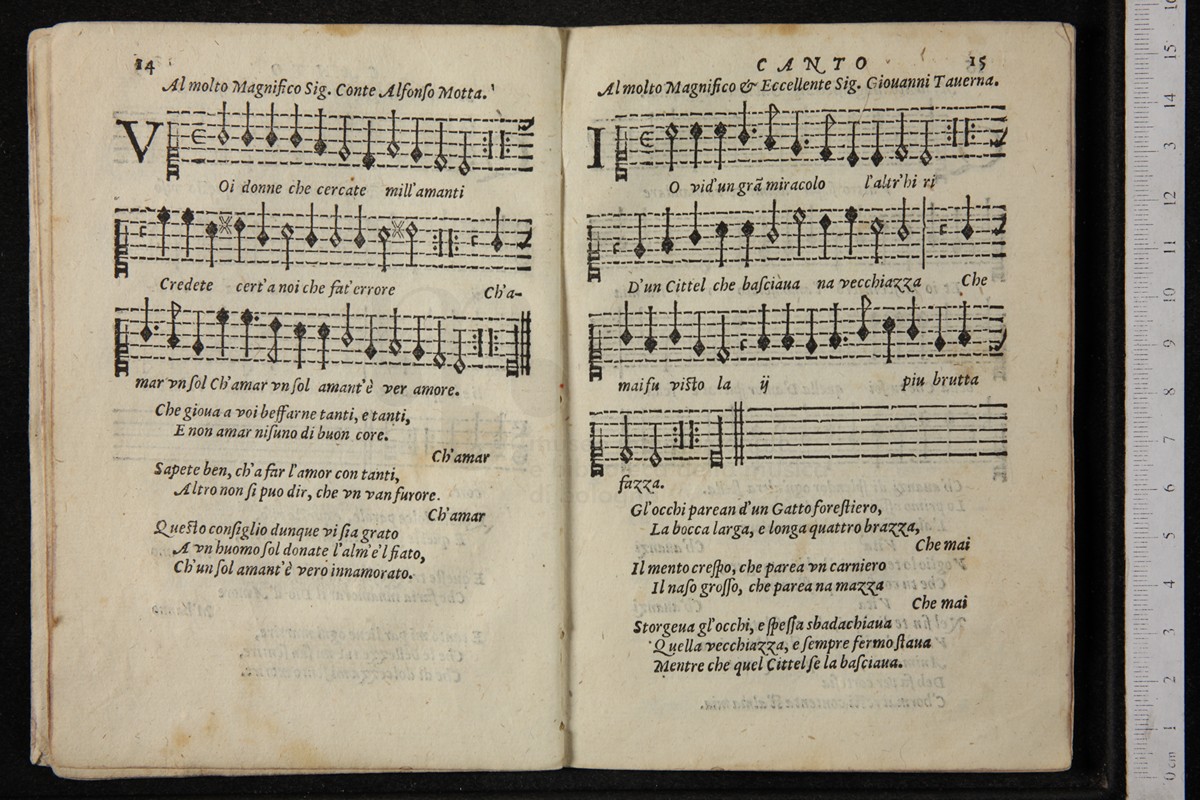 14
Al molto Magnifico Sig. Conte Alfonſo Motta.
VOi donne che cercate mill'amanti
Credete cert'a noi che fat'errore Ch'a-
mar vn ſol Ch'amar vn ſol amant'è ver amore.
Che gioua a voi beffarne tanti, e tanti,
E non amar niſuno di buon core.
Ch'amar
Sapete ben, ch'a far l'amor con tanti,
Altro non ſi puo dir, che vn van furore.
Ch'amar
Queſto conſiglio dunque vi ſia grato
A vn huomo ſol donate l'alm'e'l fiato,
Ch'un ſol amant'è vero innamorato.
CANTO 15
Al molto Magnifico & Eccellente Sig. Giouanni Tauerna.
IO vid'un grã miracolo l'altr'hi ri
D'un Cittel che baſciaua na vecchiazza Che
mai fu viſto la ij piu brutta
fazza.
Gl'occhi parean d'un Gatto foreſtiero,
La bocca larga, e longa quattro brazza,
Che mai
Il mento creſpo, che parea vn carniero
Il naſo groſſo, che parea na mazza
Che mai
Storgeua gl'occhi, e ſpeſſa sbadachiaua
Quella vecchiazza, e ſempre fermo ſtaua
Mentre che quel Cittel ſe la baſciaua.
0 cm 1 2 3 4 5 6 7 8 9 10 11 12 13 14 15 16